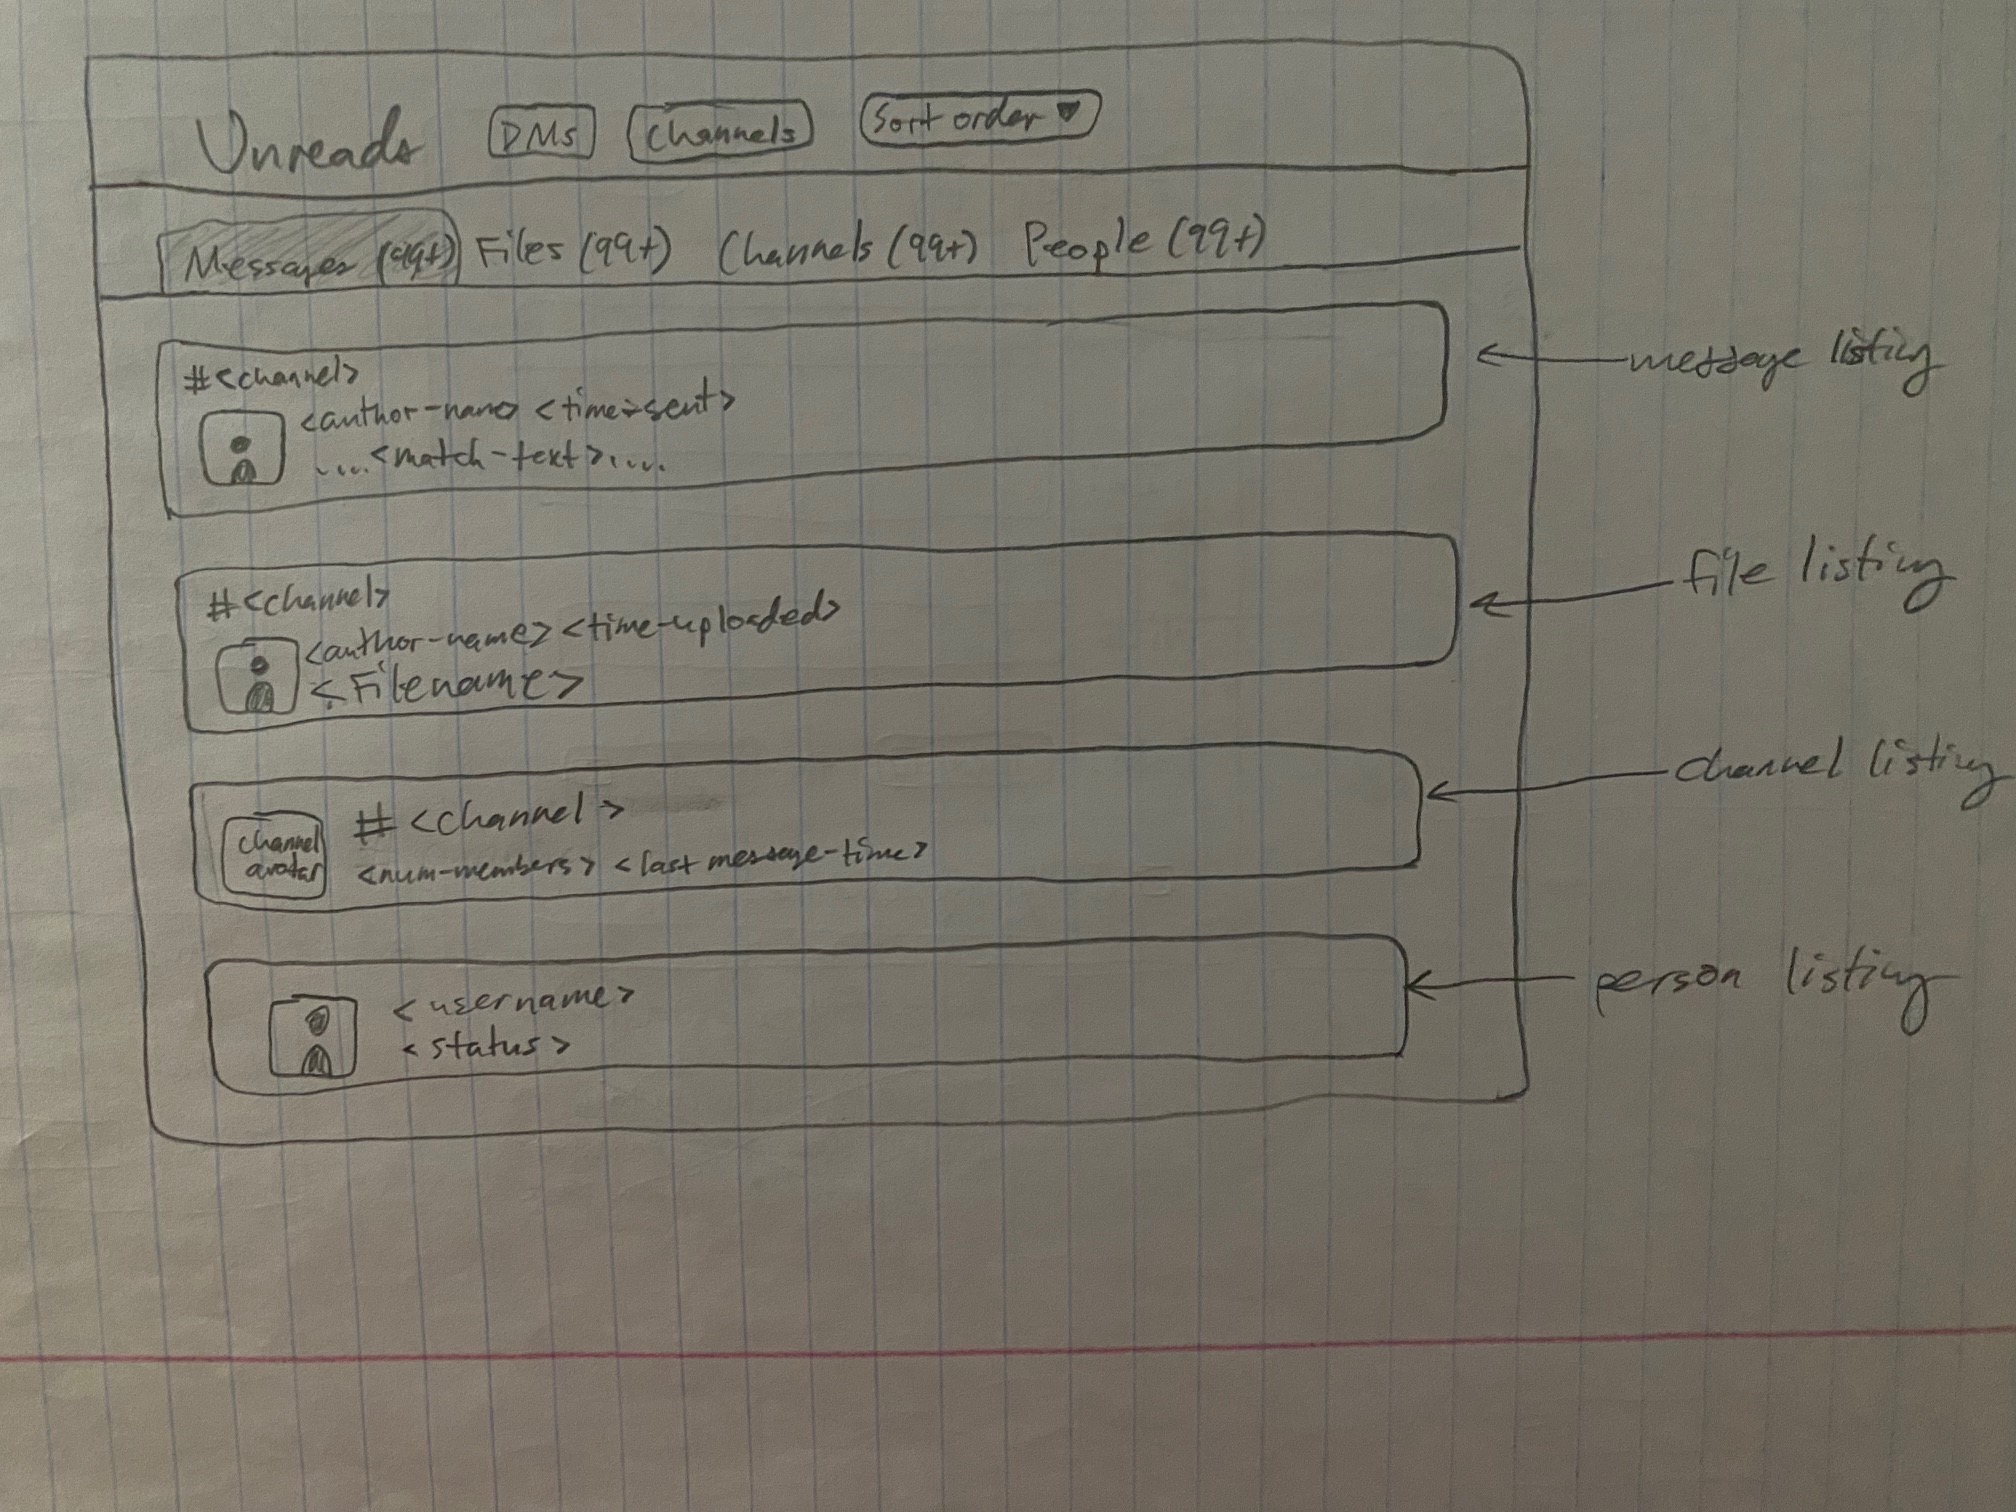 Unreads DMs Channels Sort order
Messages (99+) Files (99+) Channels (99+) People (99+)
#<channel>
<author-name> <time-sent>
....<match-text>....
message listing
#<channel>
<author-name> <time-uploaded>
<Filename>
file listing
channel avatar
# <channel>
<num-members> <last message-time>
channel listing
<username>
<status>
person listing